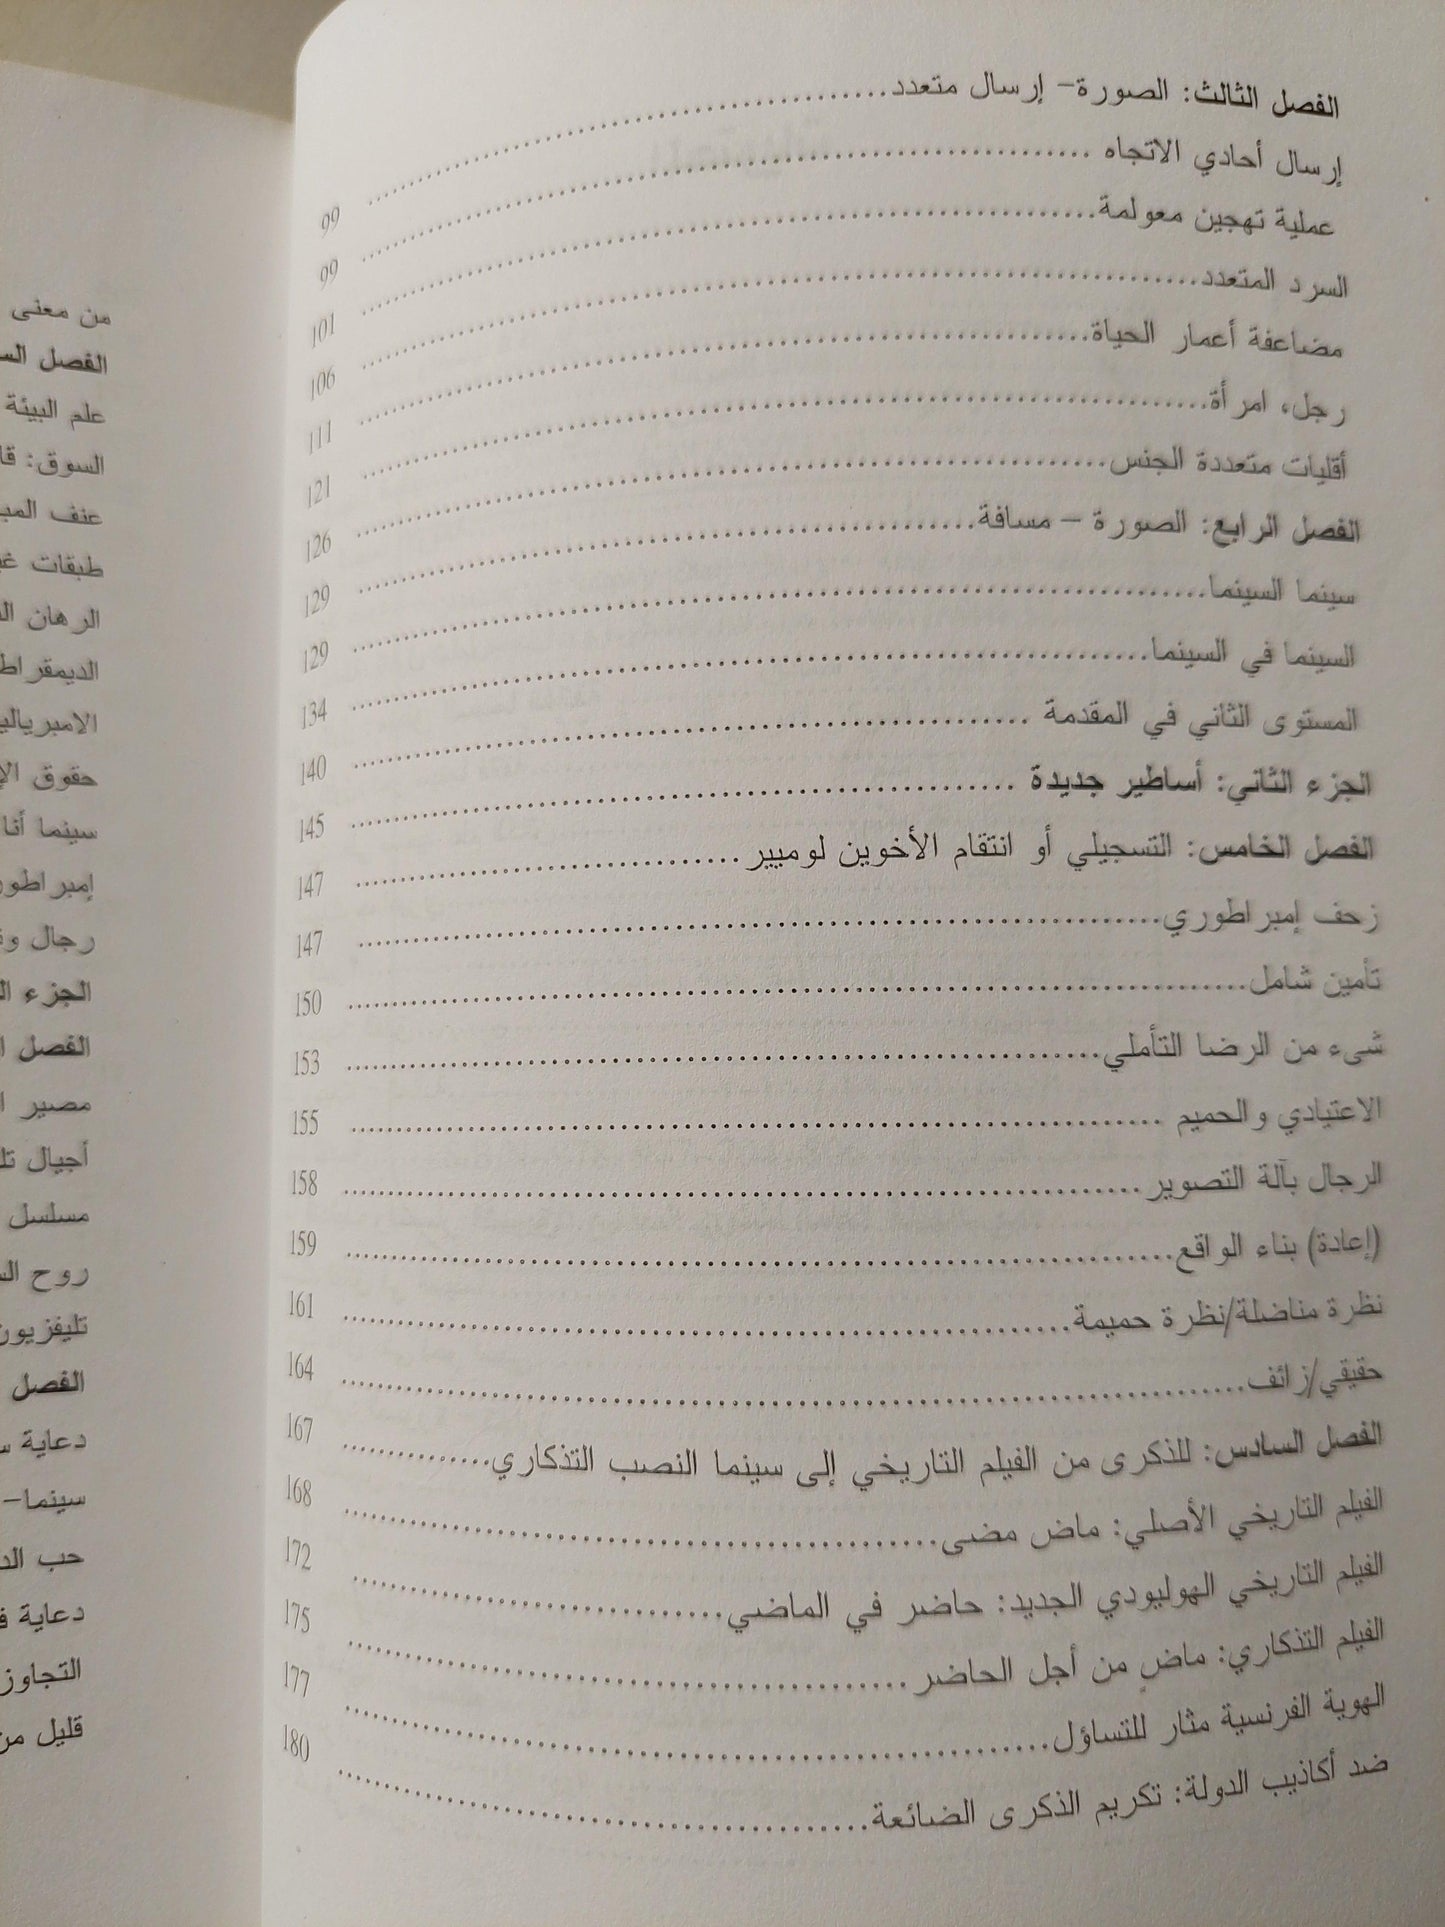 الفصل الثالث: الصورة– إرسال متعدد.......... 99
إرسال أحادي الاتجاه .......... 99
عملية تهجين معولمة.......... 101
السرد المتعدد.......... 106
مضاعفة أعمار الحياة.......... 111
رجل، امرأة.......... 121
أقليات متعددة الجنس.......... 126
الفصل الرابع: الصورة – مسافة.......... 129
سينما السينما.......... 129
السينما في السينما.......... 134
المستوى الثاني في المقدمة .......... 140
الجزء الثاني: أساطير جديدة .......... 145
الفصل الخامس: التسجيلي أو انتقام الأخوين لوميير.......... 147
زحف إمبراطوري.......... 147
تأمين شامل.......... 150
شىء من الرضا التأملي.......... 153
الاعتيادي والحميم .......... 155
الرجال بآلة التصوير.......... 158
(إعادة) بناء الواقع.......... 159
نظرة مناضلة/نظرة حميمة.......... 161
حقيقي/زائف.......... 164
الفصل السادس: للذكرى من الفيلم التاريخي إلى سينما النصب التذكاري.......... 167
الفيلم التاريخي الأصلي: ماض مضى.......... 168
الفيلم التاريخي الهوليودي الجديد: حاضر في الماضي.......... 172
الفيلم التذكاري: ماضٍ من أجل الحاضر.......... 175
الهوية الفرنسية مثار للتساؤل.......... 177
ضد أكاذيب الدولة: تكريم الذكرى الضائعة.......... 180
من معنى
الفصل
علم البيئة
السوق:
عنف
طبقات
الرهان
حقوق
سينما أنا
رجال
الجزء
الفصل
مصير
أجيال
مسلسل
روح
الفصل
دعاية
سينما–
حب
دعاية
قليل